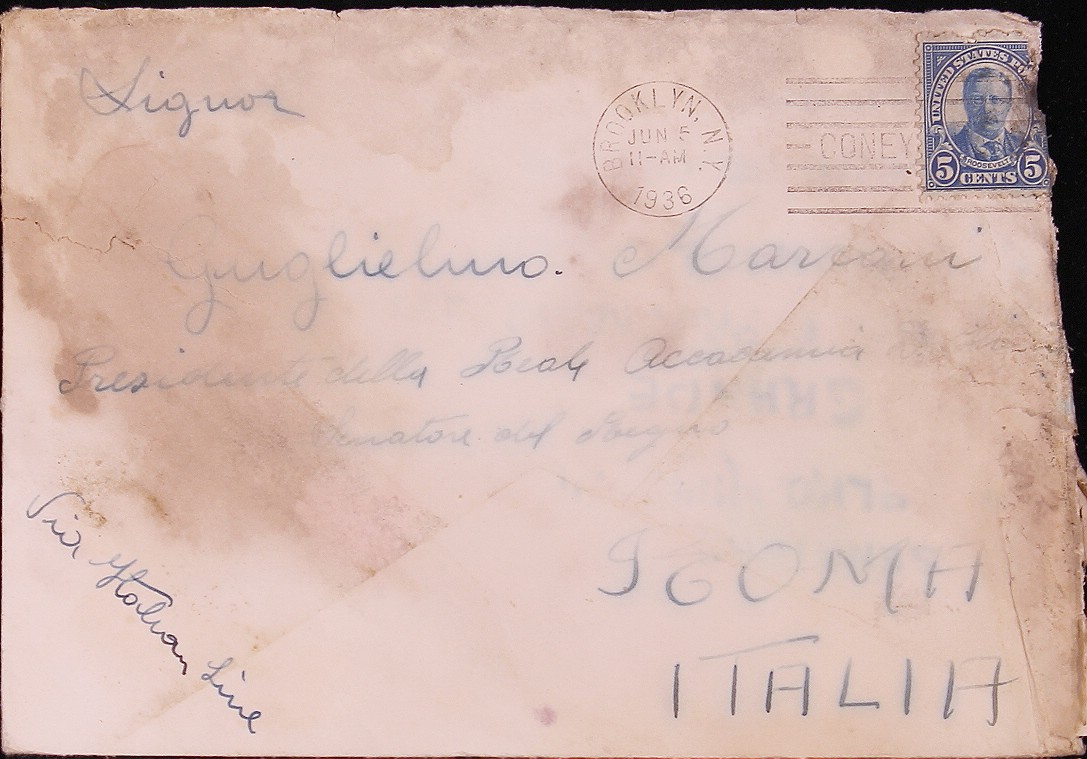 Signor
BROOKLYN, N.Y.
JUN 5
11-AM
1936
CONEY
UNITED STATES PO
ROOSEVELT
5 CENTS 5
Guglielmo. Marconi
Presidente della Reale Accademia
Senatore del Regno
ROMA
ITALIA
Via Italian Line